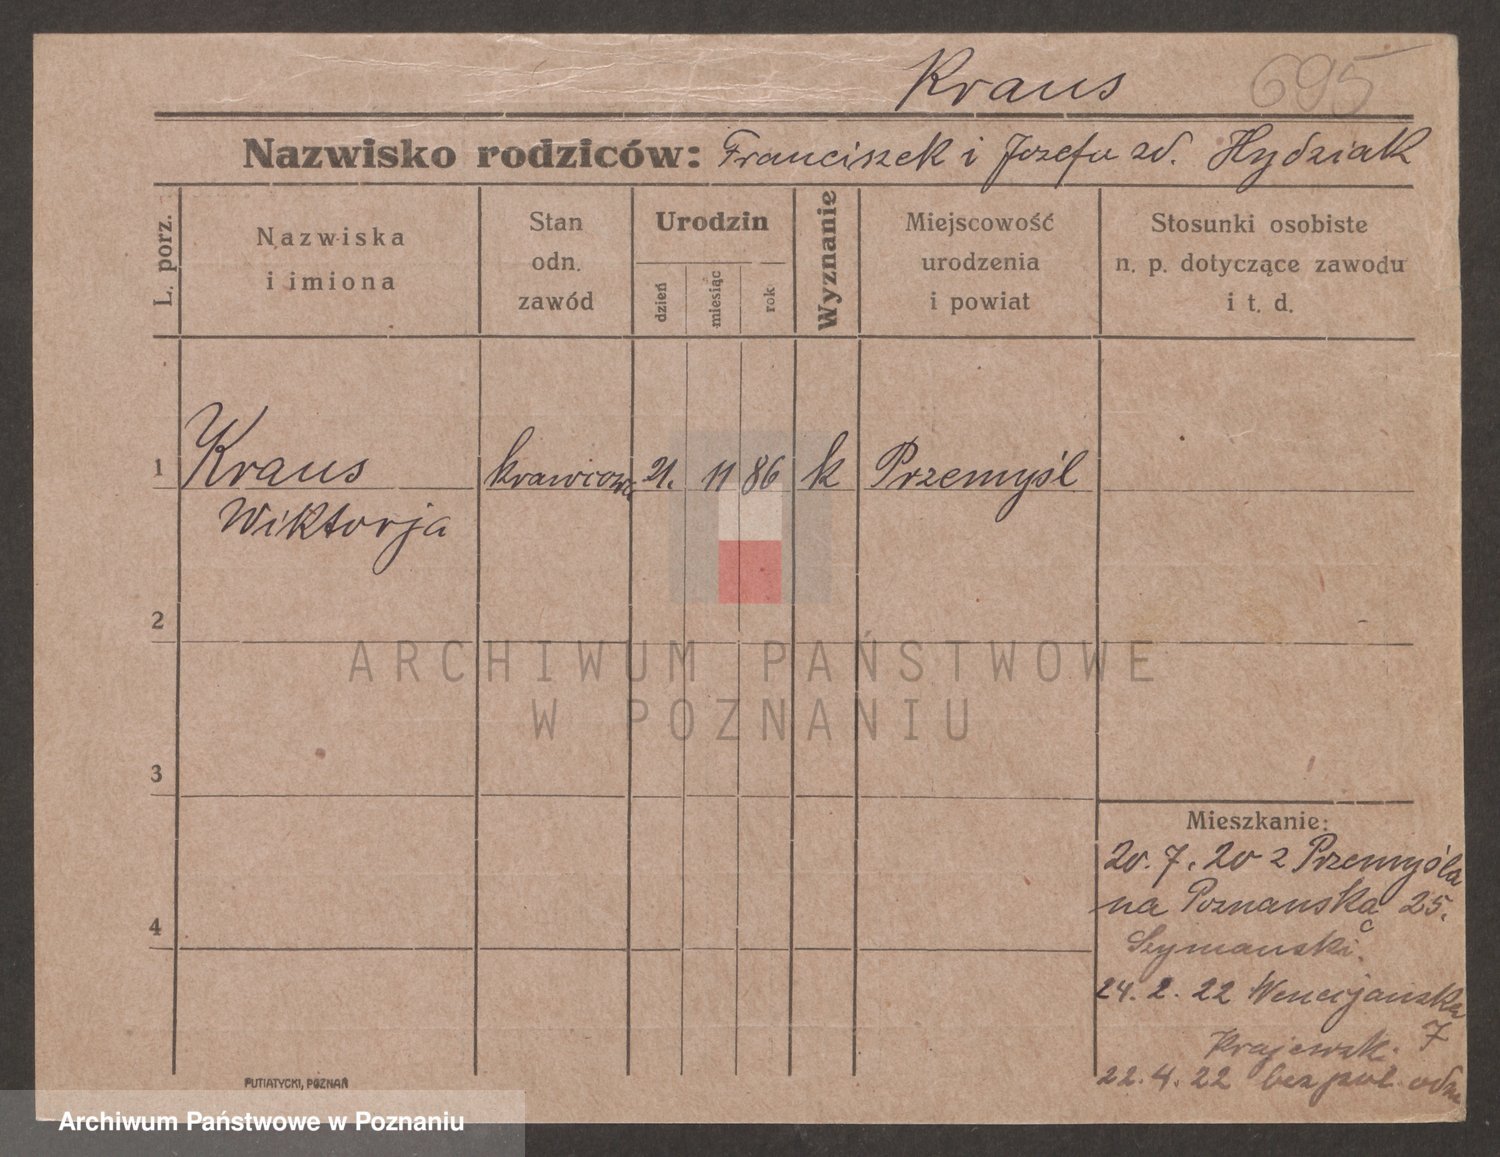 Kraus 695
Nazwisko rodziców: Franciszek i Józefa zd. Hydziak
L. porz.
Nazwiska
i imiona
Stan
odn.
zawód
Urodzin
dzień
miesiąc
rok
Wyznanie
Miejscowość
urodzenia
i powiat
Stosunki osobiste
n. p. dotyczące zawodu
i t. d.
1 Kraus krawcowa 21. 11 86 k Przemyśl
Wiktorja
2
3
4
ARCHIWUM PAŃSTWOWE
W POZNANIU
Mieszkanie:
20. 7. 20 z Przemyśla
na Poznańską 25.
Szymański
24. 2. 22 Wenecjańska
7
Krajewski
22. 4. 22 bez pol. odm
PUTIATYCKI, POZNAŃ
Archiwum Państwowe w Poznaniu